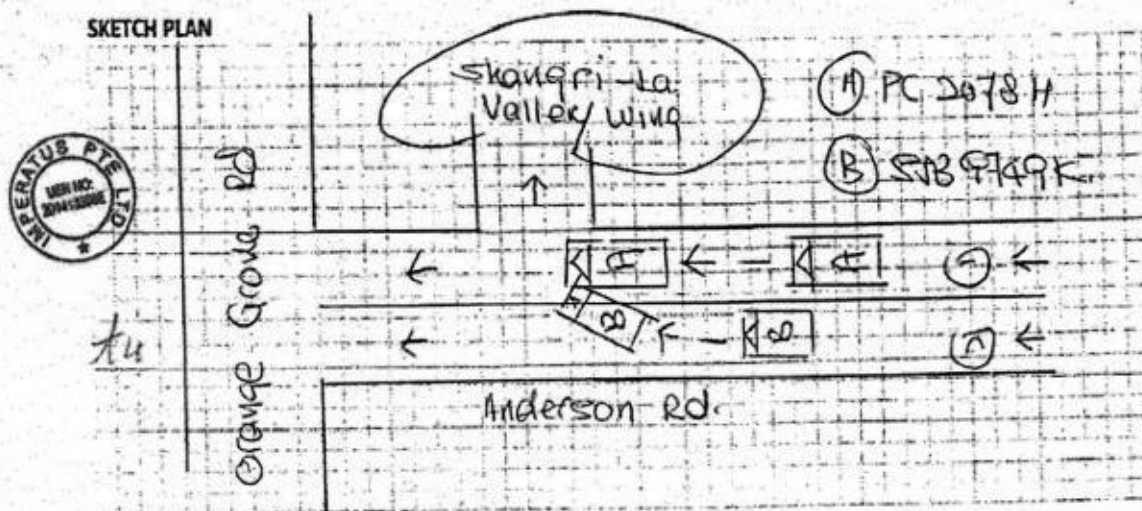 SKETCH PLAN
Shangri-La
Valley Wing
(A) PC 2078 H
(B) SJB 9749K
IMPERATUS PTE LTD
UEN NO:
Orange Grove Rd
A
A
B
B
Anderson Rd.